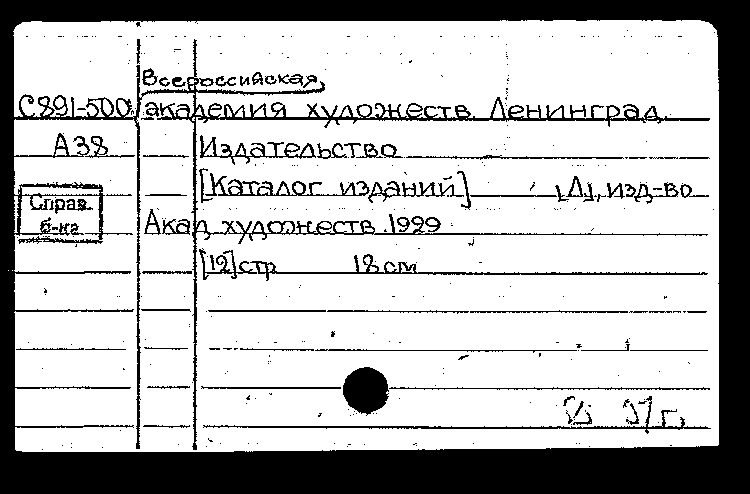 Всероссийская
С891-500 академия художеств. Ленинград.
А38 Издательство
[Каталог изданий] [Л], изд-во
Справ. б-ка
Акад. художеств. 1929
[12] стр 18 см